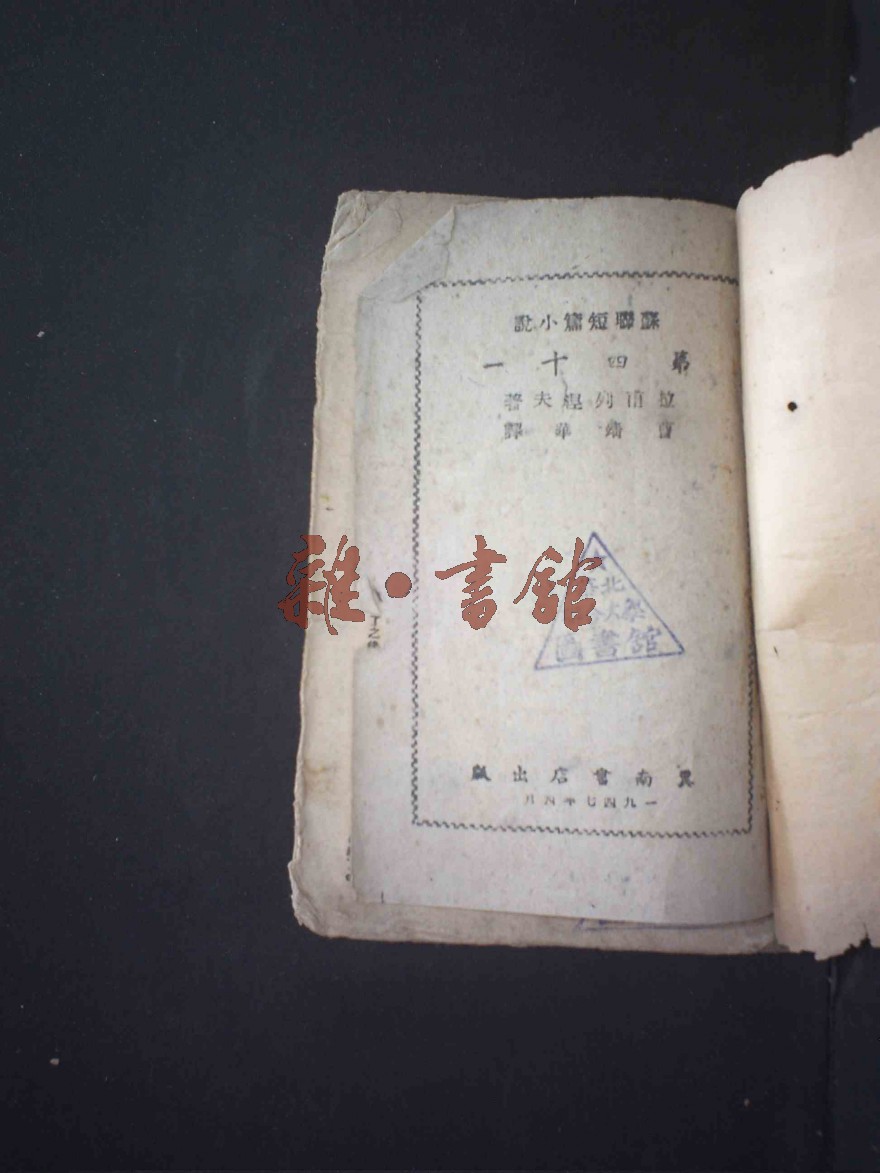 蘇聯短篇小說
第四十一
拉甫列涅夫著
曹靖華譯
冀南書店出版
一九四七年四月
雜·書館
北
大學
圖書館